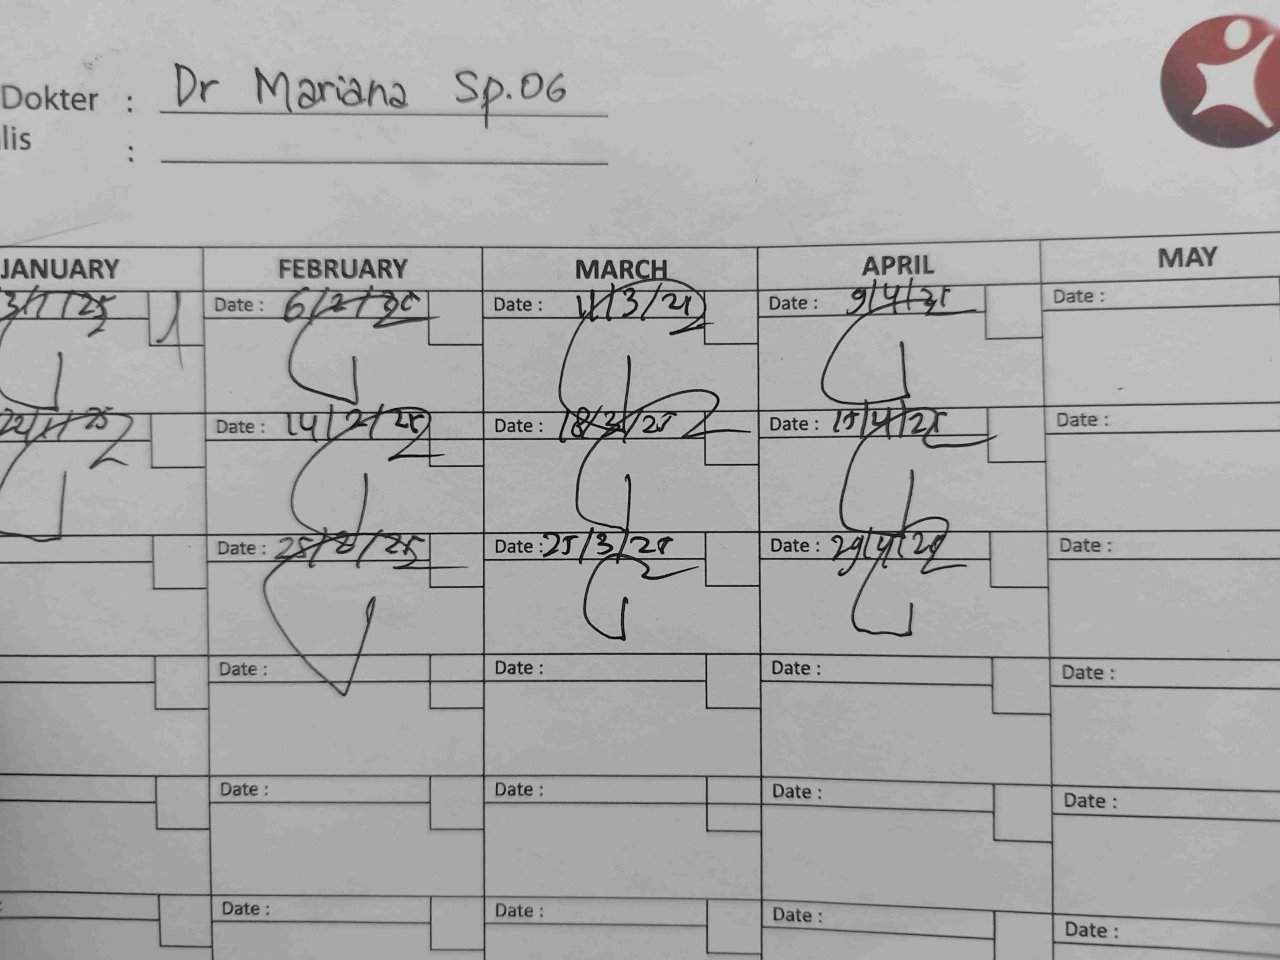 Dokter : Dr Mariana Sp.OG
lis :
JANUARY FEBRUARY MARCH APRIL MAY
3/1/25 Date : 6/2/25 Date : 11/3/25 Date : 9/4/25 Date :
22/1/25 Date : 14/2/25 Date : 18/3/25 Date : 15/4/25 Date :
Date : 25/2/25 Date : 25/3/25 Date : 29/4/25 Date :
Date : Date : Date : Date :
Date : Date : Date : Date :
Date : Date : Date : Date :